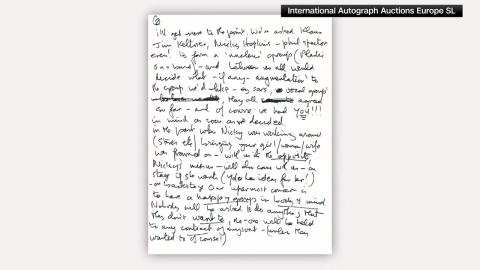 International Autograph Auctions Europe SL
i'll get more to the point. We've asked Klaus
Jim Keltner, Nicky Hopkins - phil spector
even! to form a 'nucleus' group (Plastic
Ono band) - and between us all would
decide what - if any - augmentation to
the group we'd like - eg saxs, vocal group
they all agreed
so far - and of course we had YOU!!!
in mind as soon as we decided.
in the past when Nicky was working around
(Stones etc) bringing your girl/woman/wife
was frowned on - with us it's the opposite,
Nicky's missus - will also come with us - on
stage if she wants (Yoko has ideas for her!)
- or backstage. Our uppermost concern is
to have a happy group in body & mind
Nobody will be asked to do anything that
they don't want to, no-one will be held
to any contract of any sort - (unless they
wanted to of course!)